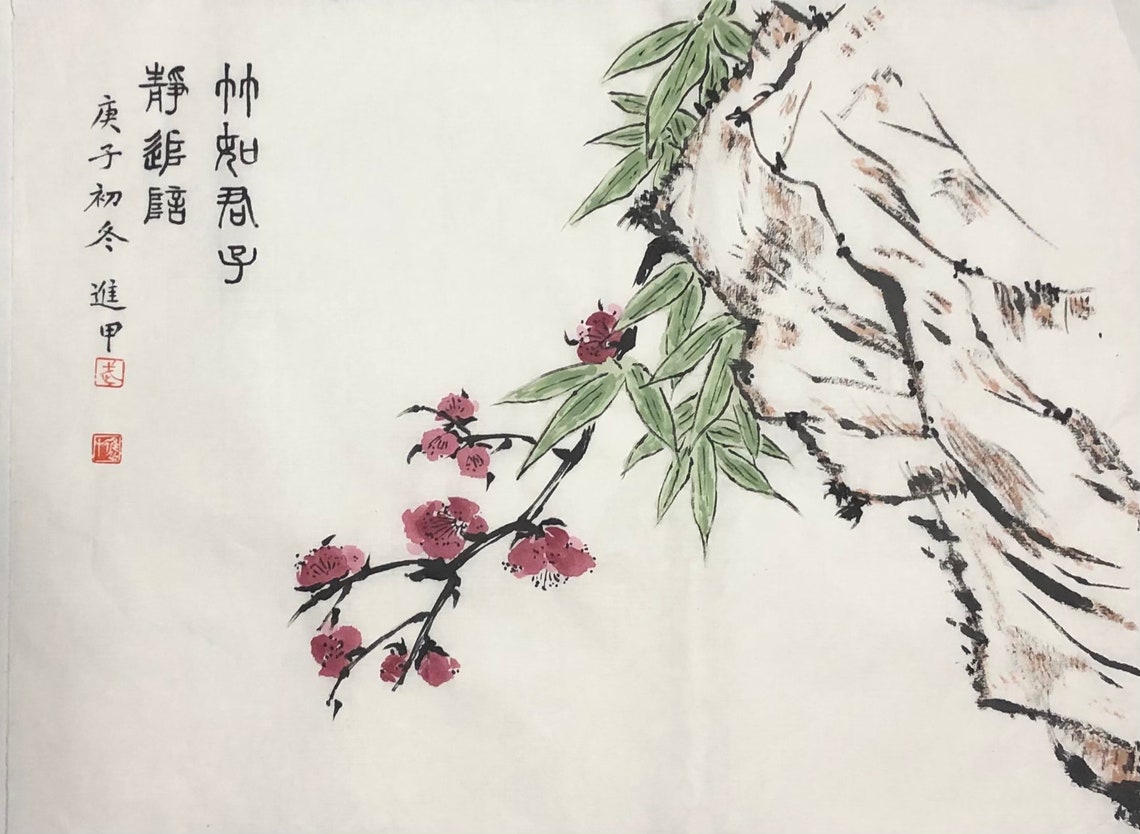 竹如君子
靜追陪
庚子初冬 進甲